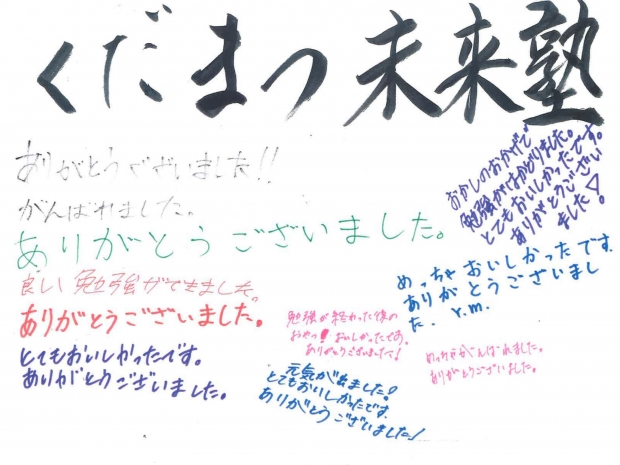 くだまつ未来塾
ありがとうございました!!
がんばれました。
ありがとうございました。
良い勉強ができました。
ありがとうございました。
とてもおいしかったです。
ありがとうございました。
おかしのおかげで
勉強がはかどりました。
とてもおいしかったです。
ありがとうござい
ました!
めっちゃおいしかったです。
ありがとうございまし
た。 Y.m.
勉強が終わった後の
おやつ!おいしかったです。
ありがとうございました!
元気が出ました!
とてもおいしかったです。
ありがとうございました!
めっちゃがんばれました。
ありがとうございました。